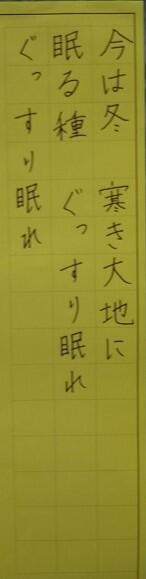 今は冬　寒き大地に
眠る種　ぐっすり眠れ
ぐっすり眠れ